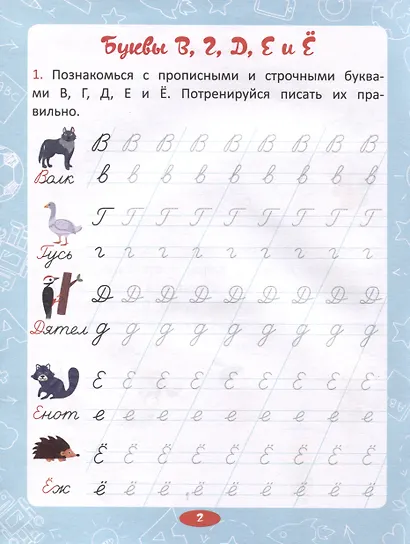 Буквы В, Г, Д, Е и Ё
1. Познакомься с прописными и строчными буква-
ми В, Г, Д, Е и Ё. Потренируйся писать их пра-
вильно.
В В В В В В В В В
в в в в в в в в в
Волк
Г Г Г Г Г Г Г Г Г
г г г г г г г г г
Гусь
Д Д Д Д Д Д Д Д Д
д д д д д д д д д
Дятел
Е Е Е Е Е Е Е Е Е
е е е е е е е е е
Енот
Ё Ё Ё Ё Ё Ё Ё Ё Ё
ё ё ё ё ё ё ё ё ё
Ёж
2